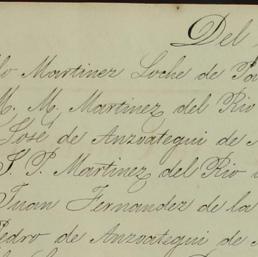 Del
lo Martinez Loche de
M. M. Martinez del Rio
José de Anzoategui de
J. P. Martinez del Rio
Juan Fernandez de la
Pedro de Anzoategui de